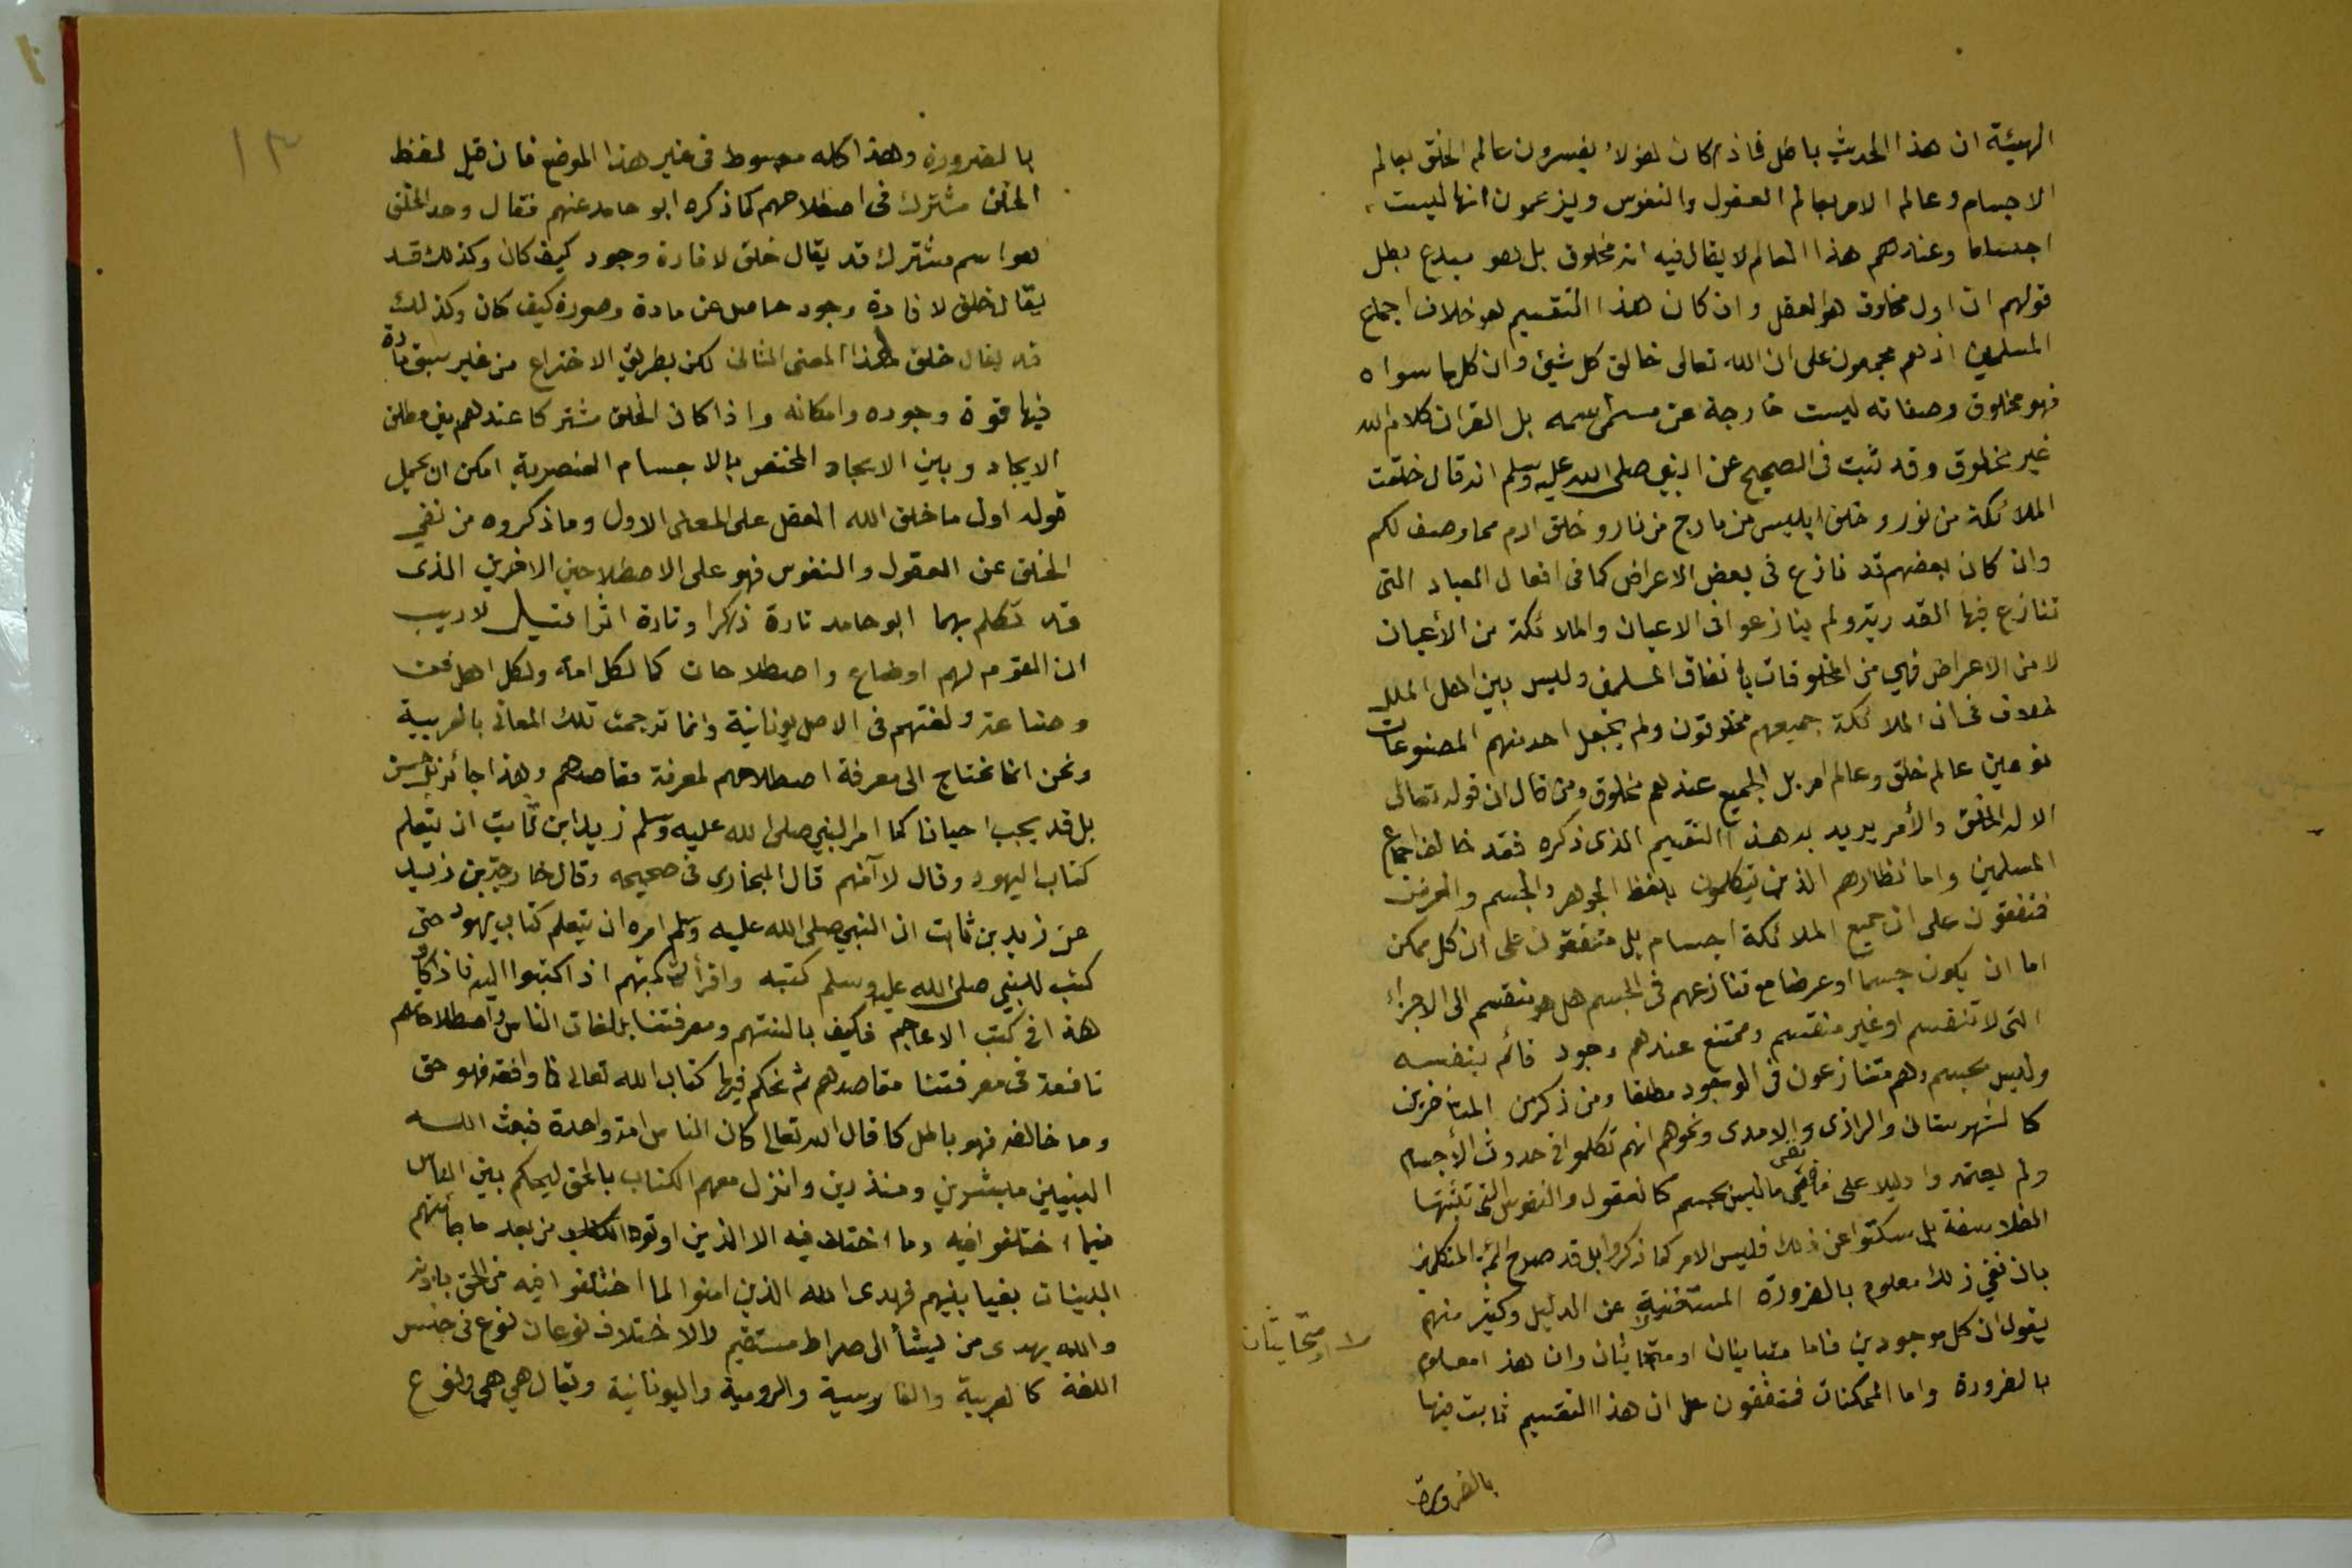 الهيئة ان هذا الحديث باطل فاذا كان هؤلاء يفسرون عالم الخلق بعالم
الاجسام وعالم الامر بعالم العقول والنفوس ويزعمون انها ليست
اجساما وعندهم هذا العالم لا يقال فيه انه مخلوق بل هو مبدع بطل
قولهم ان اول مخلوق هو العقل وان كان هذا التقسيم هو خلاف اجماع
المسلمين اذ هم مجمعون على ان الله تعالى خالق كل شيئ وان كل ما سواه
فهو مخلوق وصفاته ليست خارجة عن مسمى اسمه بل القران كلام الله
غير مخلوق وقد ثبت في الصحيح عن النبي صلى الله عليه وسلم انه قال خلقت
الملائكة من نور وخلق ابليس من مارج من نار وخلق ادم مما وصف لكم
وان كان بعضهم قد نازع في بعض الاعراض كما في افعال العباد التى
تنازع فيها القدرية ولم ينازعوا في الاعيان والملائكة من الأعيان
لا من الاعراض فهي من المخلوقات باتفاق المسلمين وليس بين اهل الملل
خلاف في ان الملائكة جميعهم مخلوقون ولم يجعل احد منهم المصنوعات
نوعين عالم خلق وعالم امر بل الجميع عندهم مخلوق ومن قال ان قوله تعالى
الا له الخلق والأمر يريد به هذا التقسيم الذى ذكره فقد خالف اجماع
المسلمين واما نظارهم الذين يتكلمون بلفظ الجوهر والجسم والعرض
فمتفقون على ان جميع الملائكة اجسام بل متفقون على ان كل ممكن
اما ان يكون جسما او عرضا مع تنازعهم في الجسم هل هو منقسم الى الاجزاء
التى لا تنقسم او غير منقسم وممتنع عندهم وجود قائم بنفسه
وليس بجسم وهم متنازعون في الوجود مطلقا ومن ذكر من المتأخرين
كالشهرستاني والرازى والامدى ونحوهم انهم تكلموا في حدوث الأجسام
ولم يعتمدوا دليلا على نفى ما ليس بجسم كالعقول والنفوس التى تثبتها
الفلاسفة بل سكتوا عن ذلك فليس الامر كما ذكروا بل قد صرح ائمة المتكلمين
بان نفي ذلك معلوم بالضرورة المستغنية عن الدليل وكثير منهم
يقول ان كل موجودين فاما متباينان او متحايثان وان هذا معلوم
او متحايثان
بالضرورة واما الممكنات فمتفقون على ان هذا التقسيم ثابت فيها
بالضرورة
١٣
بالضرورة وهذا كله مبسوط في غير هذا الموضع فان قيل لفظ
الخلق مشترك في اصطلاحهم كما ذكره ابو حامد عنهم فقال وحد الخلق
هو اسم مشترك قد يقال خلق لافادة وجود كيف كان وكذلك قد
يقال خلق لافادة وجود حاصل عن مادة وصورة كيف كان وكذلك
قد يقال خلق لهذا المعنى الثاني لكن بطريق الاختراع من غير سبق مادة
فيها قوة وجوده وامكانه واذا كان الخلق مشتركا عندهم بين مطلق
الايجاد وبين الايجاد المختص بالاجسام العنصرية امكن ان يحمل
قوله اول ما خلق الله العقل على المعنى الاول وما ذكروه من نفي
الخلق عن العقول والنفوس فهو على الاصطلاحين الاخرين الذى
قد تكلم بهما ابو حامد تارة ذكرا وتارة اثرا قيل لا ريب
ان القوم لهم اوضاع واصطلاحات كما لكل امة ولكل اهل فن
وصناعة ولغتهم في الاصل يونانية وانما ترجمت تلك المعاني بالعربية
ونحن انما نحتاج الى معرفة اصطلاحهم لمعرفة مقاصدهم وهذا جائز بل حسن
بل قد يجب احيانا كما امر النبي صلى الله عليه وسلم زيد ابن ثابت ان يتعلم
كتاب اليهود وقال لا آمنهم قال البخارى في صحيحه وقال خارجة بن زيد
عن زيد بن ثابت ان النبي صلى الله عليه وسلم امره ان يتعلم كتاب يهود حتى
كتب للنبي صلى الله عليه وسلم كتبه واقرأ له كتبهم اذا كتبوا اليه فاذا كان
هذا في كتب الاعاجم فكيف بالسنتهم ومعرفتنا بلغات الناس واصطلاحاتهم
نافعة في معرفتنا مقاصدهم ثم نحكم فيها كتاب الله تعالى فما وافقه فهو حق
وما خالفه فهو باطل كما قال الله تعالى كان الناس امة واحدة فبعث الله
النبيين مبشرين ومنذرين وانزل معهم الكتاب بالحق ليحكم بين الناس
فيما اختلفوا فيه وما اختلف فيه الا الذين اوتوه من بعد ما جائتهم
البينات بغيا بينهم فهدى الله الذين امنوا لما اختلفوا فيه من الحق باذنه
والله يهدى من يشأ الى صراط مستقيم والاختلاف نوعان نوع في جنس
اللغة كالعربية والفارسية والرومية واليونانية ويقال هي هي ونوع